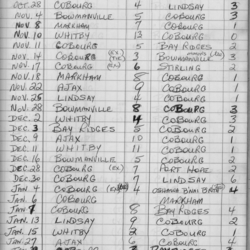 OCT. 28 COBOURG 4 LINDSAY 3
NOV. 4 BOWMANVILLE 5 COBOURG 3
NOV. 8 MARKHAM 7 COBOURG
NOV. 10 WHITBY 13 COBOURG 0
NOV. 11 COBOURG 5 BAY RIDGES 2
NOV. 14 COBOURG 3 BOWMANVILLE 3
NOV. 17 COBOURG (EX) 6 STIRLING 2
NOV. 18 MARKHAM 8 COBOURG
NOV. 22 AJAX 9 COBOURG 1
NOV. 25 LINDSAY 4 COBOURG
NOV. 28 BOWMANVILLE 8 COBOURG 3
DEC. 2 WHITBY 14 COBOURG 3
DEC. 3 BAY RIDGES 5 COBOURG
DEC. 9 AJAX 10 COBOURG 1
DEC. 11 WHITBY 11 COBOURG
DEC. 16 BOWMANVILLE 5 COBOURG
DEC. 28 COBOURG (EX) 6 PORT HOPE 2
DEC. 30 COBOURG 7 LINDSAY
JAN. 4 COBOURG 4
JAN. 6 COBOURG MARKHAM
JAN. 7 COBOURG 8 BAY RIDGES 4
JAN. 13 LINDSAY 5 COBOURG
JAN. 15 WHITBY 2 COBOURG
JAN. 27 AJAX 6 COBOURG